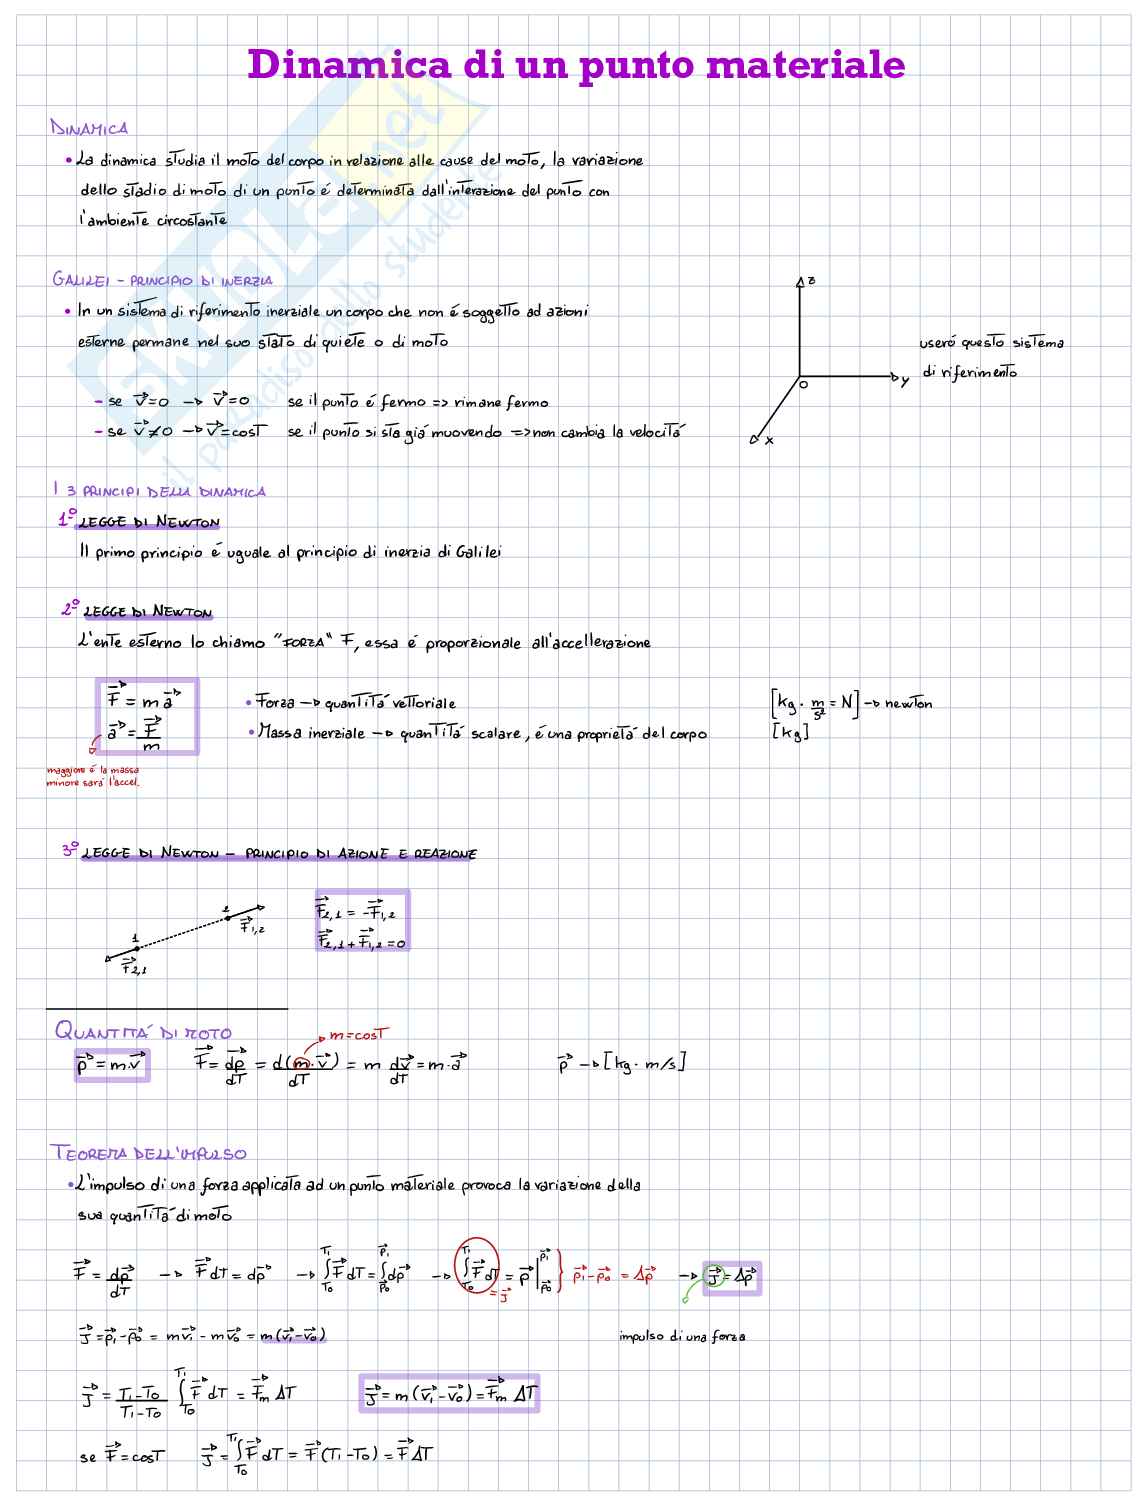 Dinamica di un punto materiale
DINAMICA
• La dinamica studia il moto del corpo in relazione alle cause del moto, la variazione
dello stadio di moto di un punto é determinata dall'interazione del punto con
l'ambiente circostante
GALILEI - PRINCIPIO DI INERZIA
• In un sistema di riferimento inerziale un corpo che non é soggetto ad azioni
esterne permane nel suo stato di quiete o di moto
- se v⃗=0 → v⃗=0 se il punto é fermo => rimane fermo
- se v⃗≠0 → v⃗=cost se il punto si sta giá muovendo => non cambia la velocitá
z
y
x
O
useró questo sistema
di riferimento
I 3 PRINCIPI DELLA DINAMICA
1° LEGGE DI NEWTON
Il primo principio é uguale al principio di inerzia di Galilei
2° LEGGE DI NEWTON
L'ente esterno lo chiamo "FORZA" F, essa é proporzionale all'accellerazione
F⃗ = m a⃗ • Forza → quantitá vettoriale [kg · m/s² = N] → newton
a⃗ = F⃗/m • Massa inerziale → quantitá scalare, é una proprietá del corpo [kg]
maggiore é la massa
minore sará l'accel.
3° LEGGE DI NEWTON - PRINCIPIO DI AZIONE E REAZIONE
2
F⃗1,2
1
F⃗2,1
F⃗2,1 = -F⃗1,2
F⃗2,1 + F⃗1,2 = 0
QUANTITÁ DI MOTO
m = cost
p⃗ = m·v⃗ F⃗ = dp⃗/dT = d(m·v⃗)/dT = m dv⃗/dT = m·a⃗ p⃗ → [kg · m/s]
TEOREMA DELL'IMPULSO
• L'impulso di una forza applicata ad un punto materiale provoca la variazione della
sua quantitá di moto
F⃗ = dp⃗/dT → F⃗ dT = dp⃗ → ∫T0^T1 F⃗ dT = ∫p⃗0^p⃗1 dp⃗ → ∫T0^T1 F⃗ dT = p⃗ |p⃗0^p⃗1 } p⃗1 - p⃗0 = Δp⃗ → J⃗ = Δp⃗
= J⃗
J⃗ = p⃗1 - p⃗0 = m v⃗1 - m v⃗0 = m(v⃗1 - v⃗0) impulso di una forza
J⃗ = T1-T0/T1-T0 ∫T0^T1 F⃗ dT = F⃗m ΔT J⃗ = m (v⃗1 - v⃗0) = F⃗m ΔT
se F⃗ = cost J⃗ = ∫T0^T1 F⃗ dT = F⃗ (T1 - T0) = F⃗ ΔT
SKUOLA.net
il paradiso dello studente